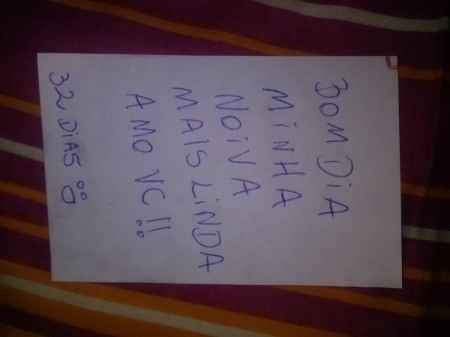 BOM DiA
MiNHA
NOiVA
MAIS LiNDA
AMO VC!!
32 DiAS